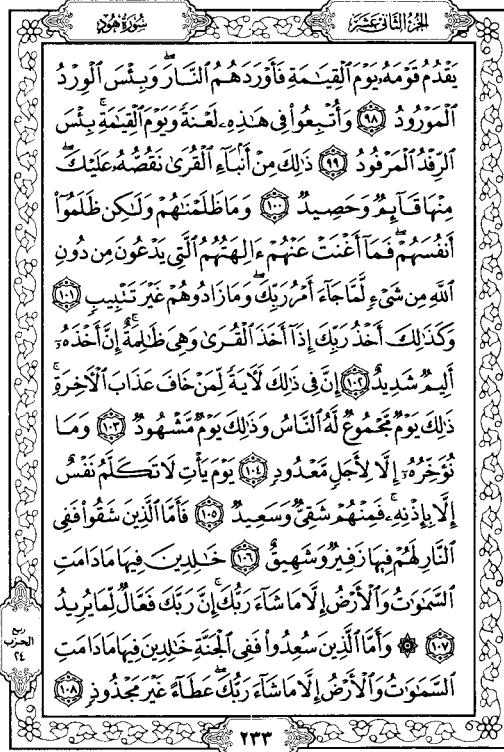 سُورَةُ هُود
الجزء الثاني عشر
يَقْدُمُ قَوْمَهُۥ يَوْمَ ٱلْقِيَٰمَةِ فَأَوْرَدَهُمُ ٱلنَّارَۖ وَبِئْسَ ٱلْوِرْدُ
ٱلْمَوْرُودُ ﴿٩٨﴾ وَأُتْبِعُوا۟ فِى هَٰذِهِۦ لَعْنَةً وَيَوْمَ ٱلْقِيَٰمَةِۚ بِئْسَ
ٱلرِّفْدُ ٱلْمَرْفُودُ ﴿٩٩﴾ ذَٰلِكَ مِنْ أَنۢبَآءِ ٱلْقُرَىٰ نَقُصُّهُۥ عَلَيْكَۖ
مِنْهَا قَآئِمٌ وَحَصِيدٌ ﴿١٠٠﴾ وَمَا ظَلَمْنَٰهُمْ وَلَٰكِن ظَلَمُوٓا۟
أَنفُسَهُمْۖ فَمَآ أَغْنَتْ عَنْهُمْ ءَالِهَتُهُمُ ٱلَّتِى يَدْعُونَ مِن دُونِ
ٱللَّهِ مِن شَىْءٍ لَّمَّا جَآءَ أَمْرُ رَبِّكَۖ وَمَا زَادُوهُمْ غَيْرَ تَتْبِيبٍ ﴿١٠١﴾
وَكَذَٰلِكَ أَخْذُ رَبِّكَ إِذَآ أَخَذَ ٱلْقُرَىٰ وَهِىَ ظَٰلِمَةٌۚ إِنَّ أَخْذَهُۥٓ
أَلِيمٌ شَدِيدٌ ﴿١٠٢﴾ إِنَّ فِى ذَٰلِكَ لَءَايَةً لِّمَنْ خَافَ عَذَابَ ٱلْءَاخِرَةِۚ
ذَٰلِكَ يَوْمٌ مَّجْمُوعٌ لَّهُ ٱلنَّاسُ وَذَٰلِكَ يَوْمٌ مَّشْهُودٌ ﴿١٠٣﴾ وَمَا
نُؤَخِّرُهُۥٓ إِلَّا لِأَجَلٍ مَّعْدُودٍ ﴿١٠٤﴾ يَوْمَ يَأْتِ لَا تَكَلَّمُ نَفْسٌ
إِلَّا بِإِذْنِهِۦۚ فَمِنْهُمْ شَقِىٌّ وَسَعِيدٌ ﴿١٠٥﴾ فَأَمَّا ٱلَّذِينَ شَقُوا۟ فَفِى
ٱلنَّارِ لَهُمْ فِيهَا زَفِيرٌ وَشَهِيقٌ ﴿١٠٦﴾ خَٰلِدِينَ فِيهَا مَا دَامَتِ
ٱلسَّمَٰوَٰتُ وَٱلْأَرْضُ إِلَّا مَا شَآءَ رَبُّكَۚ إِنَّ رَبَّكَ فَعَّالٌ لِّمَا يُرِيدُ
﴿١٠٧﴾ ۞ وَأَمَّا ٱلَّذِينَ سُعِدُوا۟ فَفِى ٱلْجَنَّةِ خَٰلِدِينَ فِيهَا مَا دَامَتِ
ٱلسَّمَٰوَٰتُ وَٱلْأَرْضُ إِلَّا مَا شَآءَ رَبُّكَۖ عَطَآءً غَيْرَ مَجْذُوذٍ ﴿١٠٨﴾
ربع
الحزب
٢٤
٢٣٣